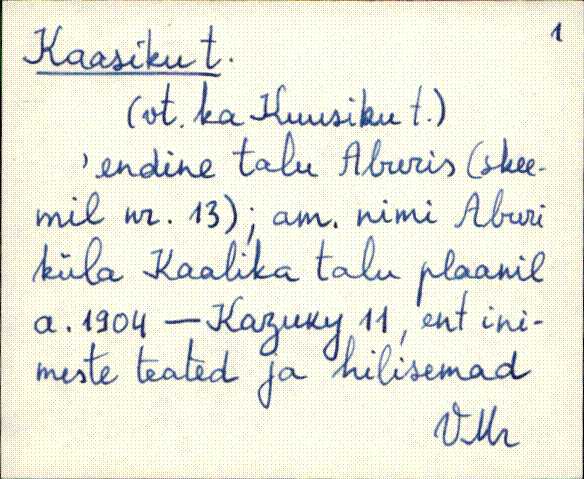 1
Kaasiku t.
(vt. ka Kuusiku t.)
'endine talu Aburis (skee-
mil nr. 13); am. nimi Aburi
küla Kaalika talu plaanil
a. 1904 — Казику 11, ent ini-
meste teated ja hilisemad
VMr